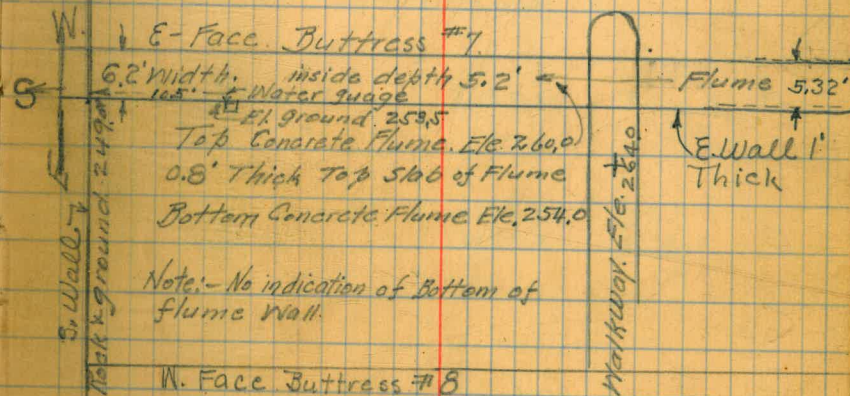 W. E-Face Buttress #7
S
6.2' Width. inside depth 5.2'
Flume 5.32'
10.5' Water guage
El. ground 259.5
Top Concrete Flume. Ele. 260.0
0.8' Thick Top Slab of Flume
Bottom Concrete Flume Ele. 254.0
E. Wall 1'
Thick
Note:- No indication of Bottom of
flume Wall.
E
S. Wall
Rock & ground 249.0
WalkWay. Ele. 264.0
W. Face Buttress #8